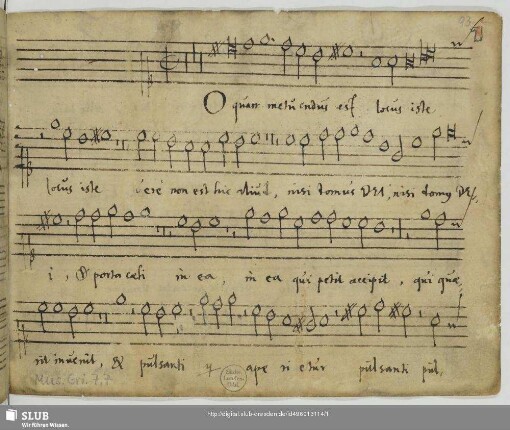 O quam metuendus est locus iste
locus iste vere non est hic aliud, nisi domus DEI, nisi domus DE-
i, & porta cœli in ea, in ea qui petit accipit, qui quæ-
rit invenit, & pulsanti aperietur pulsanti pul-
Mus. Gri. 7,7
SLUB
Wir führen Wissen.